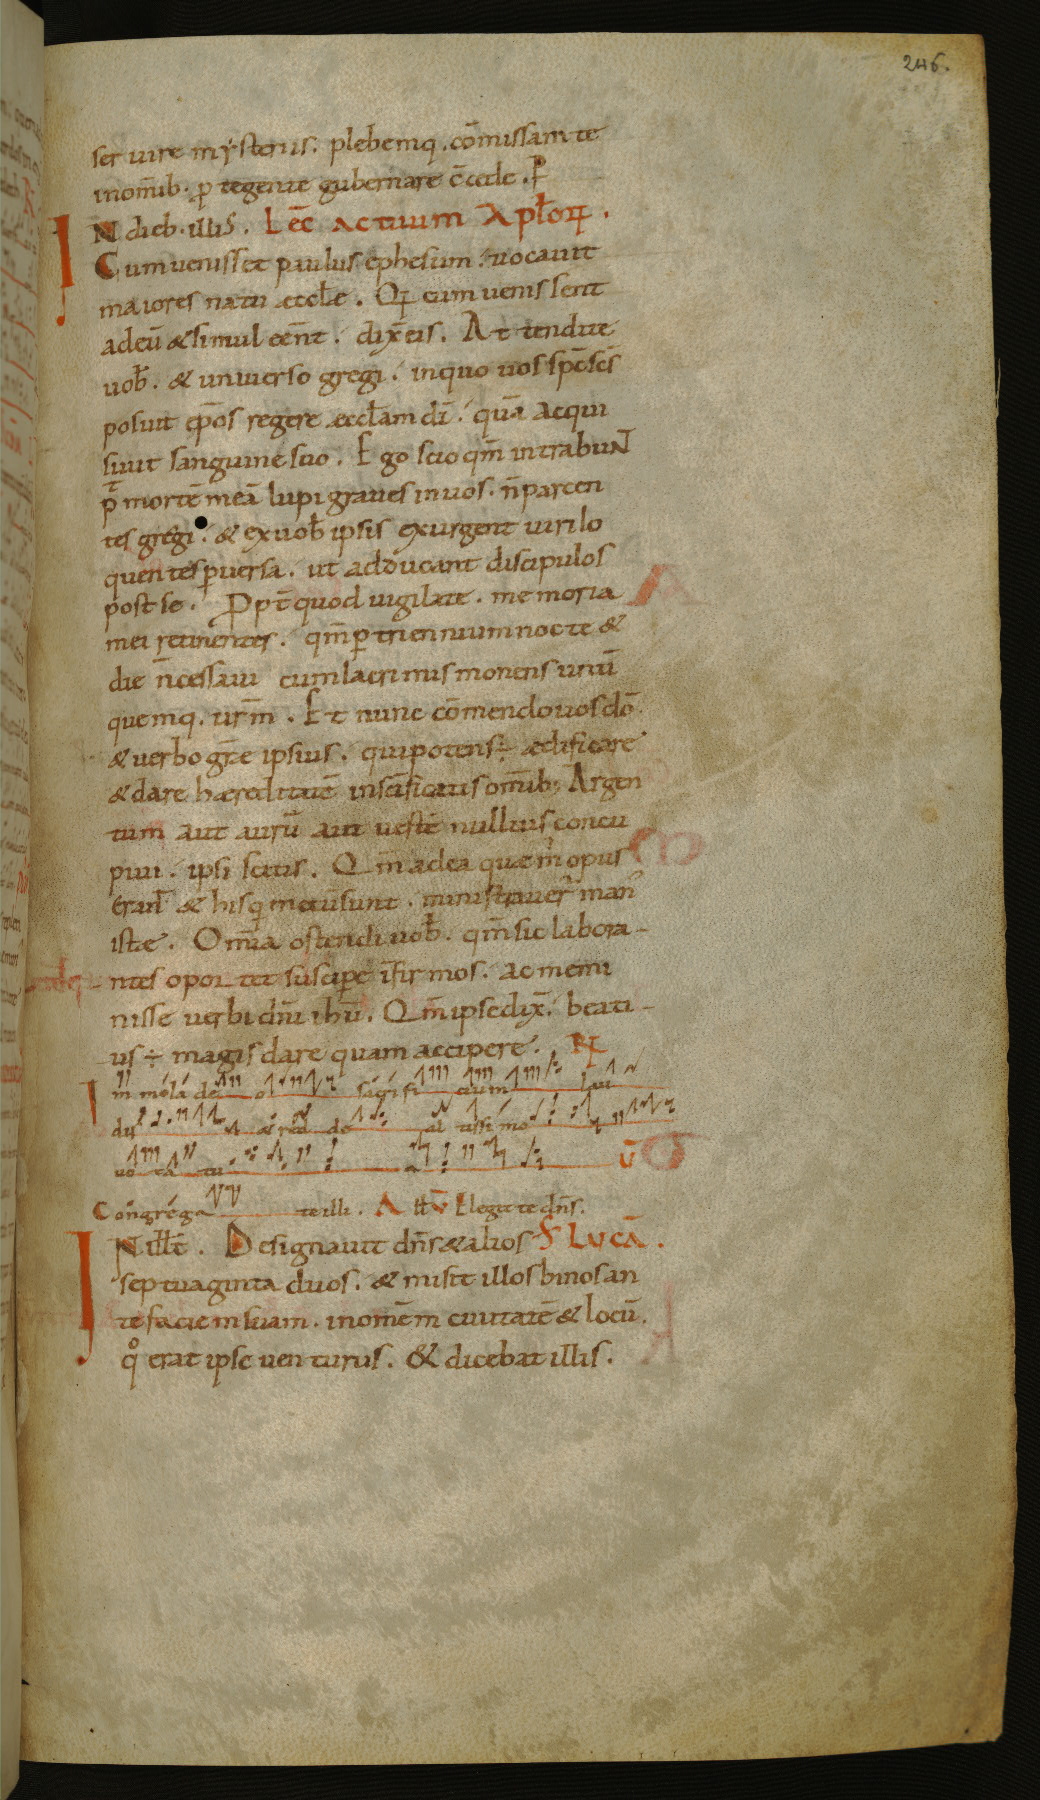 246.
servire mysteriis. plebemq. cōmissam te
inom̄ib. ꝑ tegente gubernare c̄cede. P
IN dieb. illis. Lēc Actuum Apl̄oꝝ.
Cum venisset paulus ephesum. vocavit
maiores natu æccl̄e. Qꝫ cum venissent
adeū & simul eēnt. dix̄ eis. Attendite
vob̄. & universo gregi. inquo vos sp̄c sc̄s
posuit ep̄os regere æccl̄am dī. quā acqui
sivit sanguine suo. Ego scio qm̄ intrabuN̄
p̄ mortē meā lupi graves invos. n̄ parcen
tes gregi. & ex vob̄ ipsis exurgent viri lo
quentes ꝑversa. ut adducant discipulos
post se. Ꝓpt̄ quod vigilate. memoria
mei retinentes. qm̄ ꝑ triennium nocte &
die n̄cessavi cum lacrimis monens unū
quemq. urm̄. Et nunc cōmendo vos dō.
& verbo gr̄æ ipsius. qui potens ÷ ædificare
& dare hæreditatē insc̄ificatis om̄ib; Argen
tum aut aurū aut vestē nullius concu
pivi. ipsi scitis. Qm̄ adea quæ m̄ opus
eranT & his qi mecū sunt. ministraver̄ man'
istæ. Om̄ia ostendi vob̄. qm̄ sic labora-
ntes oportet suscipe īfirmos. ac memi
nisse verbi dn̄i ihū. Qm̄ ipse dix̄. beati-
us ÷ magis dare quam accipere. R̄
Immola deo sacrifi cium lau
dis & red de al tissimo
vo ta tu a V̄
Congrega te illi. All V̄ Elegit te dn̄s.
IN ill̄ t̄. Designavit dn̄s & alios S̄ Lucā.
septuaginta duos. & misit illos binos an
te faciem suam. inom̄em civitatē & locū.
qͦ erat ipse venturus. & dicebat illis.